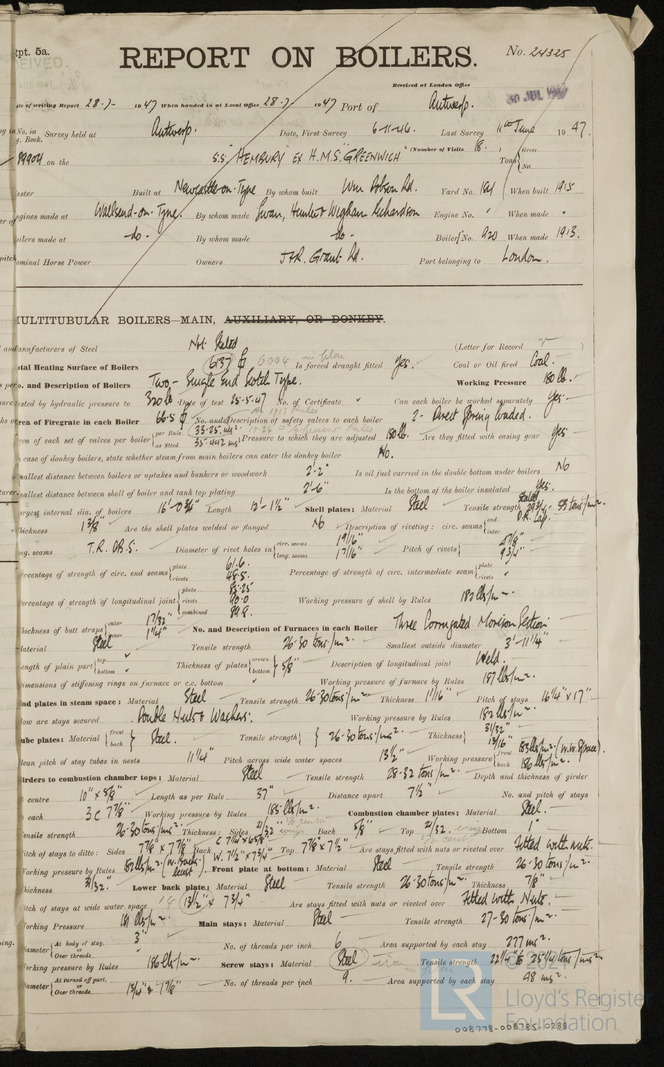 Rpt. 5a.
REPORT ON BOILERS.
No. 24325
Received at London Office
30 JUL 1947
Date of writing Report 28-7- 1947 When handed in at Local Office 28-7- 1947 Port of Antwerp.
No. in Survey held at Antwerp. Date, First Survey 6-11-46. Last Survey 11th June 1947.
Book.
89904 on the S.S. "HEMBURY" EX H.M.S. "GREENWICH" (Number of Visits 18. ) Tons { Gross Net
Built at Newcastle-on-Tyne By whom built Wm Dobson Ld. Yard No. 181 When built 1915
Engines made at Wallsend-on-Tyne. By whom made Swan, Hunter & Wigham Richardson Engine No. " When made "
Boilers made at -do- By whom made -do- Boiler No. 920 When made 1913.
Nominal Horse Power Owners J & R. Grant Ld. Port belonging to London.
MULTITUBULAR BOILERS—MAIN, AUXILIARY, OR DONKEY.
Manufacturers of Steel Not Stated (Letter for Record )
Total Heating Surface of Boilers 6137 6004 in plan Is forced draught fitted Yes. Coal or Oil fired Coal.
No. and Description of Boilers Two - Single End Scotch Type. Working Pressure 180 lb.
tested by hydraulic pressure to 320 lb Date of test 25-5-47 No. of Certificate " Can each boiler be worked separately Yes.
Area of Firegrate in each Boiler 66.5 No. and Description of safety valves to each boiler 2- Direct Spring loaded.
Area of each set of valves per boiler { per Rule as fitted Pressure to which they are adjusted 180 lb. Are they fitted with easing gear Yes
In case of donkey boilers, state whether steam from main boilers can enter the donkey boiler No.
Smallest distance between boilers or uptakes and bunkers or woodwork 2'-2" Is oil fuel carried in the double bottom under boilers No
Smallest distance between shell of boiler and tank top plating 2'-6" Is the bottom of the boiler insulated Yes.
Largest internal dia. of boilers 16'-0 3/4" Length 12'-1 1/2" Shell plates: Material Steel Tensile strength 33 tons/in².
Thickness 1 3/8 Are the shell plates welded or flanged No Description of riveting: circ. seams { end inter. D.R. Lap.
long. seams T.R. DB.S. Diameter of rivet holes in { circ. seams 1 9/16" long. seams 1 7/16" Pitch of rivets { 9 3/4"
Percentage of strength of circ. end seams { plate 61.6. rivets 48.5. Percentage of strength of circ. intermediate seam { plate rivets "
Percentage of strength of longitudinal joint { plate 85.25 rivets 90.0 combined 89.8 Working pressure of shell by Rules 182 lbs/in²
Thickness of butt straps { outer 1 7/32" inner 1 1/4" No. and Description of Furnaces in each Boiler Three Corrugated Morison Section
Material Steel Tensile strength 26-30 tons/in². Smallest outside diameter 3'-11 1/4"
Length of plain part { top bottom Thickness of plates { crown bottom } 5/8" Description of longitudinal joint Weld.
Dimensions of stiffening rings on furnace or c.c. bottom Working pressure of furnace by Rules 187 lbs/in²
End plates in steam space: Material Steel Tensile strength 26-30 tons/in² Thickness 1 1/16" Pitch of stays 16 1/4" x 17"
How are stays secured Double Nuts & Washers. Working pressure by Rules 182 lbs/in².
Tube plates: Material { front back } Steel. Tensile strength { 26-30 tons/in². Thickness { 31/32" 13/16"
Mean pitch of stay tubes in nests 11 1/4" Pitch across wide water spaces 13 1/2" Working pressure { front 183 lbs/in² (W.W. Space). back 186 lbs/in²
Girders to combustion chamber tops: Material Steel Tensile strength 28-32 tons/in². Depth and thickness of girder
centre 10" x 5/8" Length as per Rule 37" Distance apart 7 1/2" No. and pitch of stays
each 3 @ 7 7/8" Working pressure by Rules 185 lbs/in². Combustion chamber plates: Material Steel.
Tensile strength 26-30 tons/in². Thickness: Sides 21/32 Back 5/8" Top 21/32. Bottom
Pitch of stays to ditto: Sides 7 7/8" x 7 7/8" Back W. 7 1/2" x 7 3/4" Top 7 7/8" x 7 1/2" Are stays fitted with nuts or riveted over Fitted with nuts.
Working pressure by Rules Front plate at bottom: Material Steel Tensile strength 26-30 tons/in²
Thickness 31/32. Lower back plate: Material Steel Tensile strength 26-30 tons/in². Thickness 7/8"
Pitch of stays at wide water space 13 1/2" x 7 3/4" Are stays fitted with nuts or riveted over Fitted with Nuts.
Working Pressure 181 lbs/in² Main stays: Material Steel Tensile strength 27-30 tons/in².
Diameter { At body of stay, or Over threads. 3" No. of threads per inch 6 Area supported by each stay 277 ins².
Working pressure by Rules 186 lbs/in² Screw stays: Material Steel Tensile strength
Diameter { At turned off part, or Over threads 1 3/4" & 1 7/8" No. of threads per inch 9. Area supported by each stay 98 ins².
© 2021
LR
Lloyd's Register
Foundation
008778-008785-0288